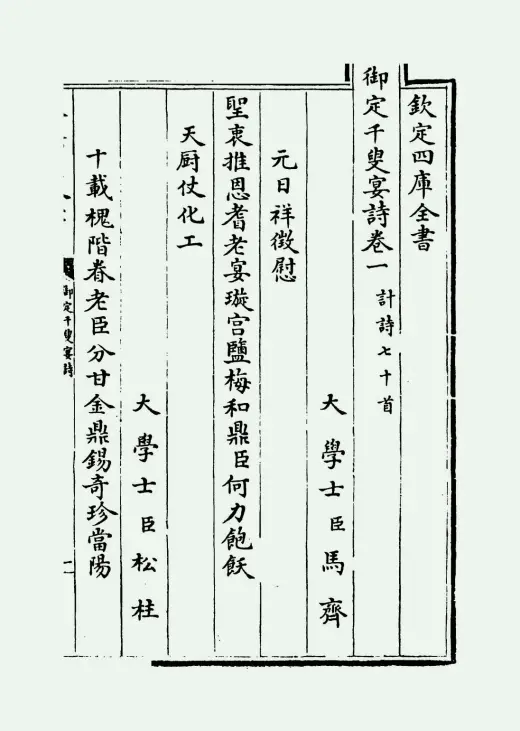 欽定四庫全書
御定千叟宴詩卷一 計詩七十首
大學士臣馬齊
元日祥徵慰
聖衷推恩耆老宴璇宫鹽梅和鼎臣何力飽飫
天厨仗化工
大學士臣松柱
十載槐階眷老臣分甘金鼎錫奇珍當陽
御定千叟宴詩